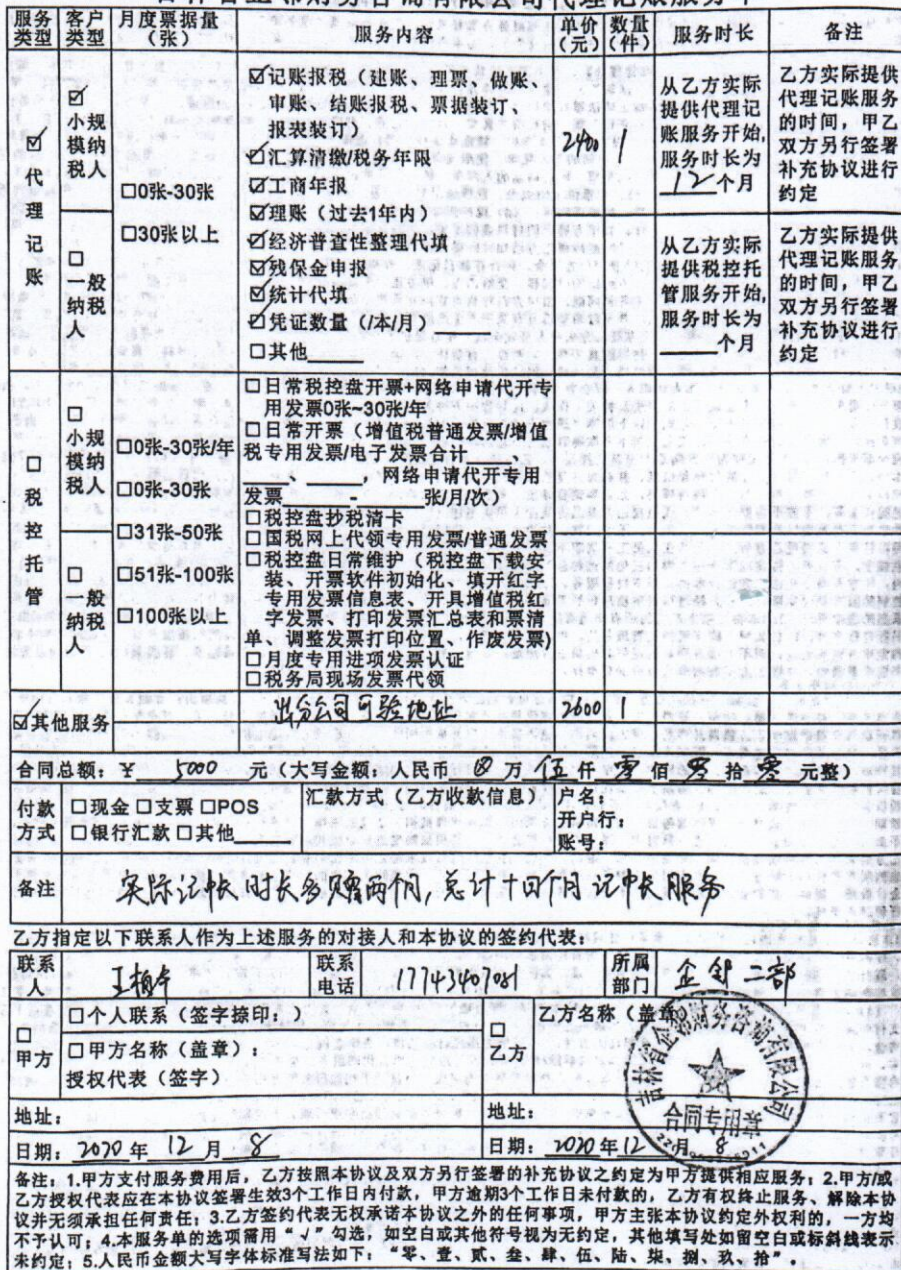 吉林省企邻财务咨询有限公司代理记账服务单
服务类型 客户类型 月度票据量(张) 服务内容 单价(元) 数量(件) 服务时长 备注
☑代理记账
☑小规模纳税人
□一般纳税人
□0张-30张
□30张以上
☑记账报税(建账、理票、做账、
审账、结账报税、票据装订、
报表装订)
☑汇算清缴/税务年限
☑工商年报
☑理账(过去1年内)
☑经济普查性整理代填
☑残保金申报
☑统计代填
☑凭证数量(/本/月)____
□其他____
2400 1
从乙方实际
提供代理记
账服务开始,
服务时长为
12个月
乙方实际提供
代理记账服务
的时间,甲乙
双方另行签署
补充协议进行
约定
从乙方实际
提供税控托
管服务开始,
服务时长为
____个月
乙方实际提供
代理记账服务
的时间,甲乙
双方另行签署
补充协议进行
约定
□税控托管
□小规模纳税人
□一般纳税人
□0张-30张/年
□0张-30张
□31张-50张
□51张-100张
□100张以上
□日常税控盘开票+网络申请代开专
用发票0张~30张/年
□日常开票(增值税普通发票/增值
税专用发票/电子发票合计____、
____、____,网络申请代开专用
发票____-____张/月/次)
□税控盘抄税清卡
□国税网上代领专用发票/普通发票
□税控盘日常维护(税控盘下载安
装、开票软件初始化、填开红字
专用发票信息表、开具增值税红
字发票、打印发票汇总表和票清
单、调整发票打印位置、作废发票)
□月度专用进项发票认证
□税务局现场发票代领
☑其他服务 出分公司可验地址 2600 1
合同总额:¥ 5000 元(大写金额:人民币 ⊗ 万 伍 仟 零 佰 零 拾 零 元整)
付款方式 □现金 □支票 □POS
□银行汇款 □其他____
汇款方式(乙方收款信息)
户名:
开户行:
账号:
备注 实际记帐时长多赠两个月,总计十四个月记帐服务
乙方指定以下联系人作为上述服务的对接人和本协议的签约代表:
联系人 联系电话 17743407081 所属部门 企邻二部
□甲方
□个人联系(签字捺印:)
□甲方名称(盖章):
授权代表(签字)
□乙方
乙方名称(盖章)
吉林省企邻财务咨询有限公司
合同专用章
地址: 地址:
日期:2020年12月8 日期:2020年12月8
备注:1.甲方支付服务费用后,乙方按照本协议及双方另行签署的补充协议之约定为甲方提供相应服务;2.甲方/或
乙方授权代表应在本协议签署生效3个工作日内付款,甲方逾期3个工作日未付款的,乙方有权终止服务、解除本协
议并无须承担任何责任;3.乙方签约代表无权承诺本协议之外的任何事项,甲方主张本协议约定外权利的,一方均
不予认可;4.本服务单的选项需用“√”勾选,如空白或其他符号视为无约定,其他填写处如留空白或标斜线表示
未约定;5.人民币金额大写字体标准写法如下:“零、壹、贰、叁、肆、伍、陆、柒、捌、玖、拾”。